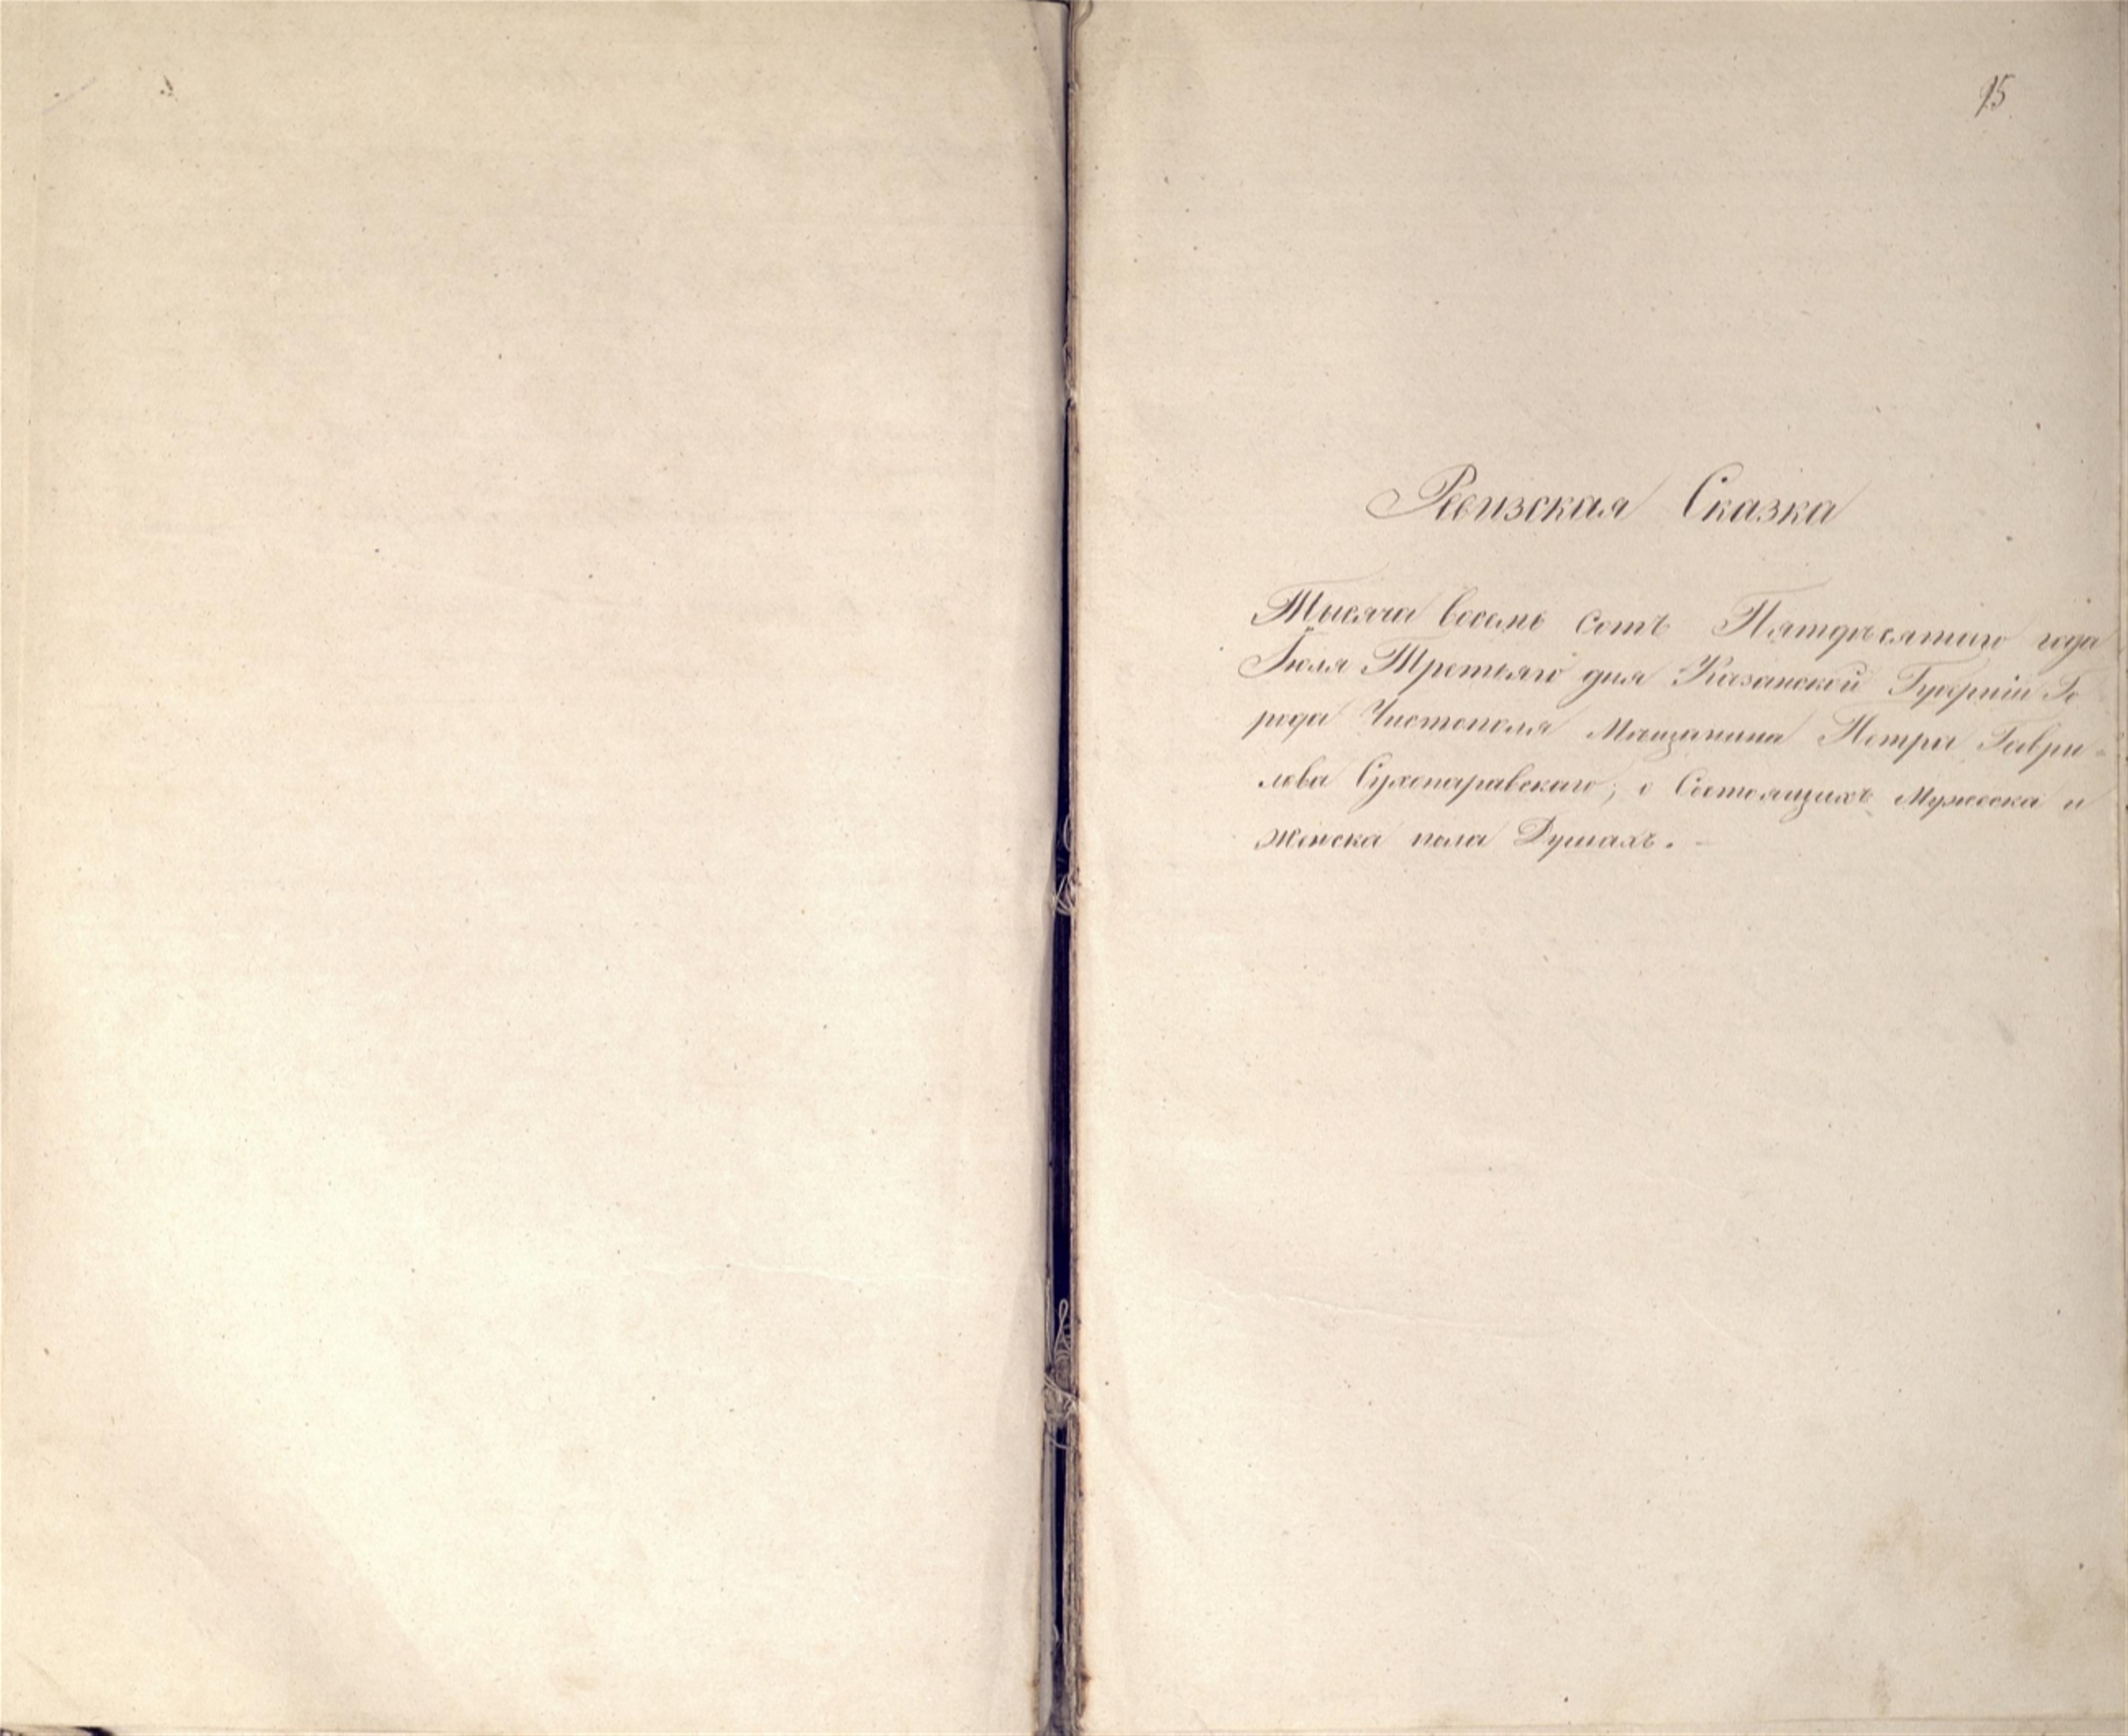 15
Ревизская Сказка
Тысяча восемь сотъ Пятдесятаго года
Іюля Третьяго дня Казанской Губерніи Го
рода Чистополя Мѣщанина Петра Гаври-
лова Сухопаравскаго; о Состоящихъ Мужеска и
Женска пола Душахъ.